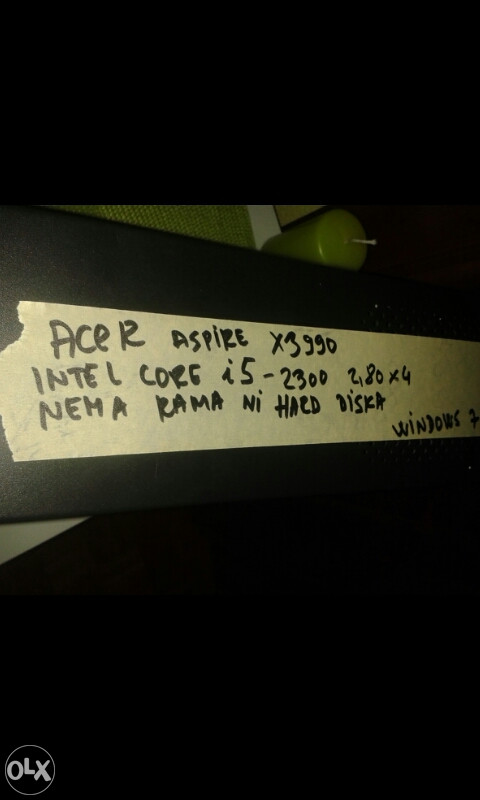 ACER ASPIRE X3990
INTEL CORE i5-2300 2,80x4
NEMA RAMA NI HARD DISKA
WINDOWS 7
OLX